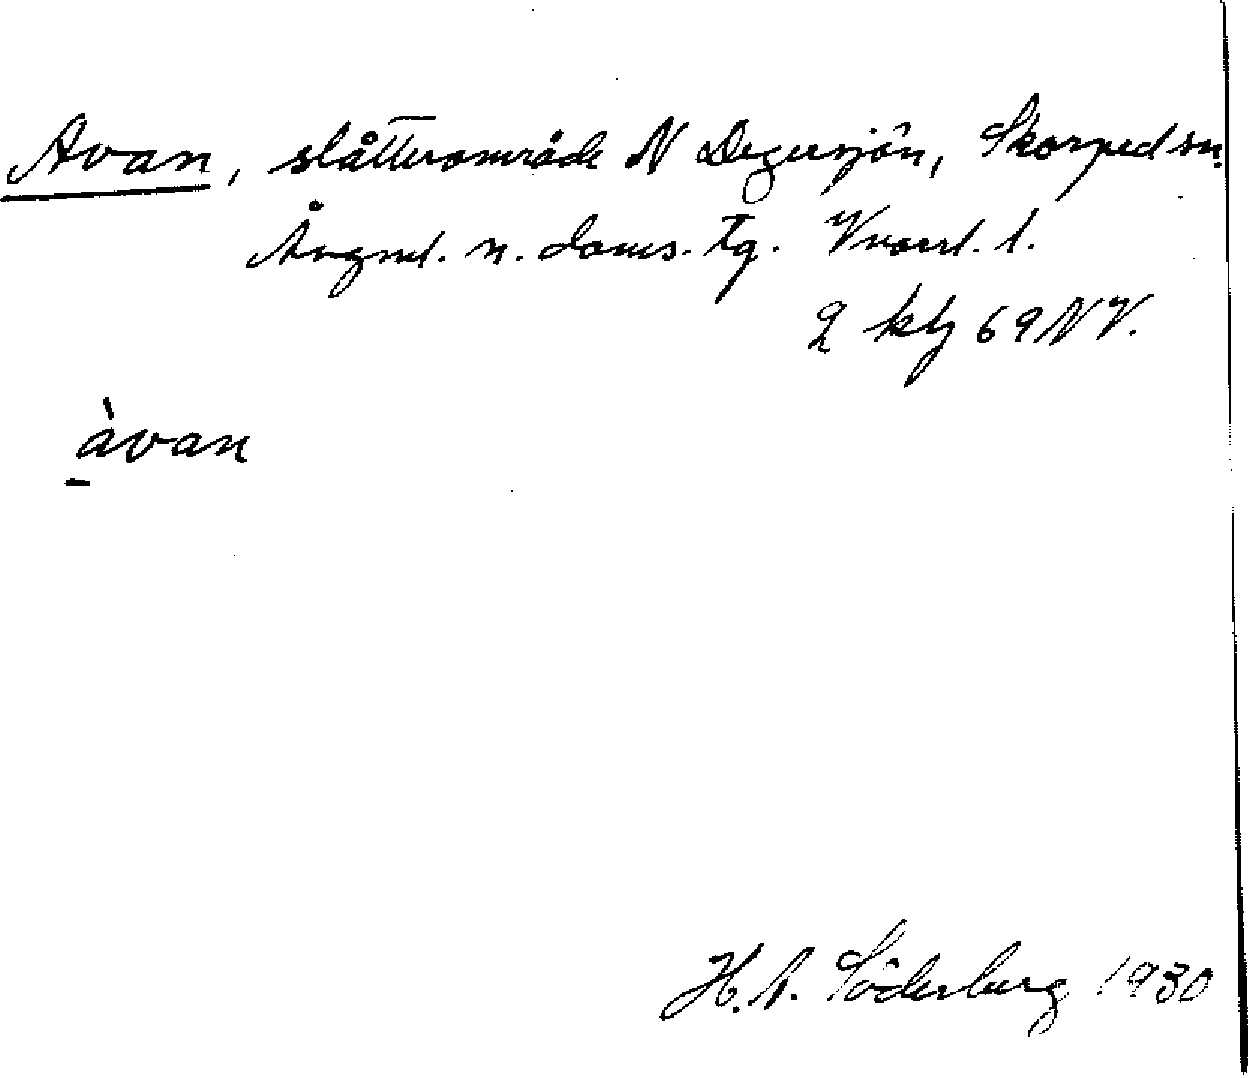 Avan, slåtterområde N Degersjön, Skorped sn.
Ångml. n. doms. tg. Vnorrl. l.
2 kbg 69 NV.
àvan
H. A. Söderberg 1930